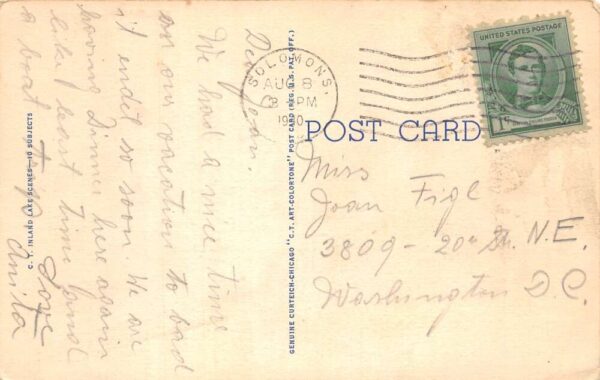 Dear Joan.
We had a nice time
on our vacation to bad
it endit so soon. We are
having Dinner here again
like last time and
a boat
Love
Anita
C. T. INLAND LAKE SCENES—10 SUBJECTS
GENUINE CURTEICH-CHICAGO "C. T. ART-COLORTONE" POST CARD (REG. U. S. PAT. OFF.)
SOLOMONS
AUG 8
PM
1940
UNITED STATES POSTAGE
1¢
POST CARD
Miss
Joan Figl
3809 - 20th St. N.E.
Washington D.C.